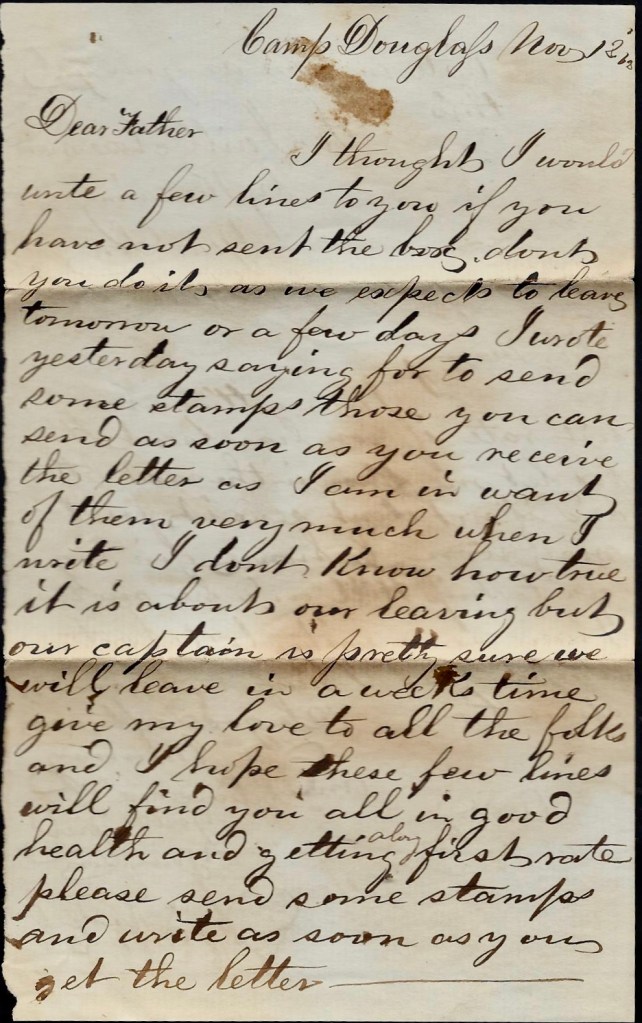 Camp Douglass Nov 12 '62
Dear Father
I thought I would
write a few lines to you if you
have not sent the box dont
you do it as we expects to leave
tomorrow or a few days I wrote
yesterday saying for to send
some stamps those you can
send as soon as you receive
the letter as I am in want
of them very much when I
write I dont Know how true
it is about our leaving but
our captain is pretty sure we
will leave in a weeks time
give my love to all the folks
and I hope these few lines
will find you all in good
health and getting along first rate
please send some stamps
and write as soon as you
get the letter